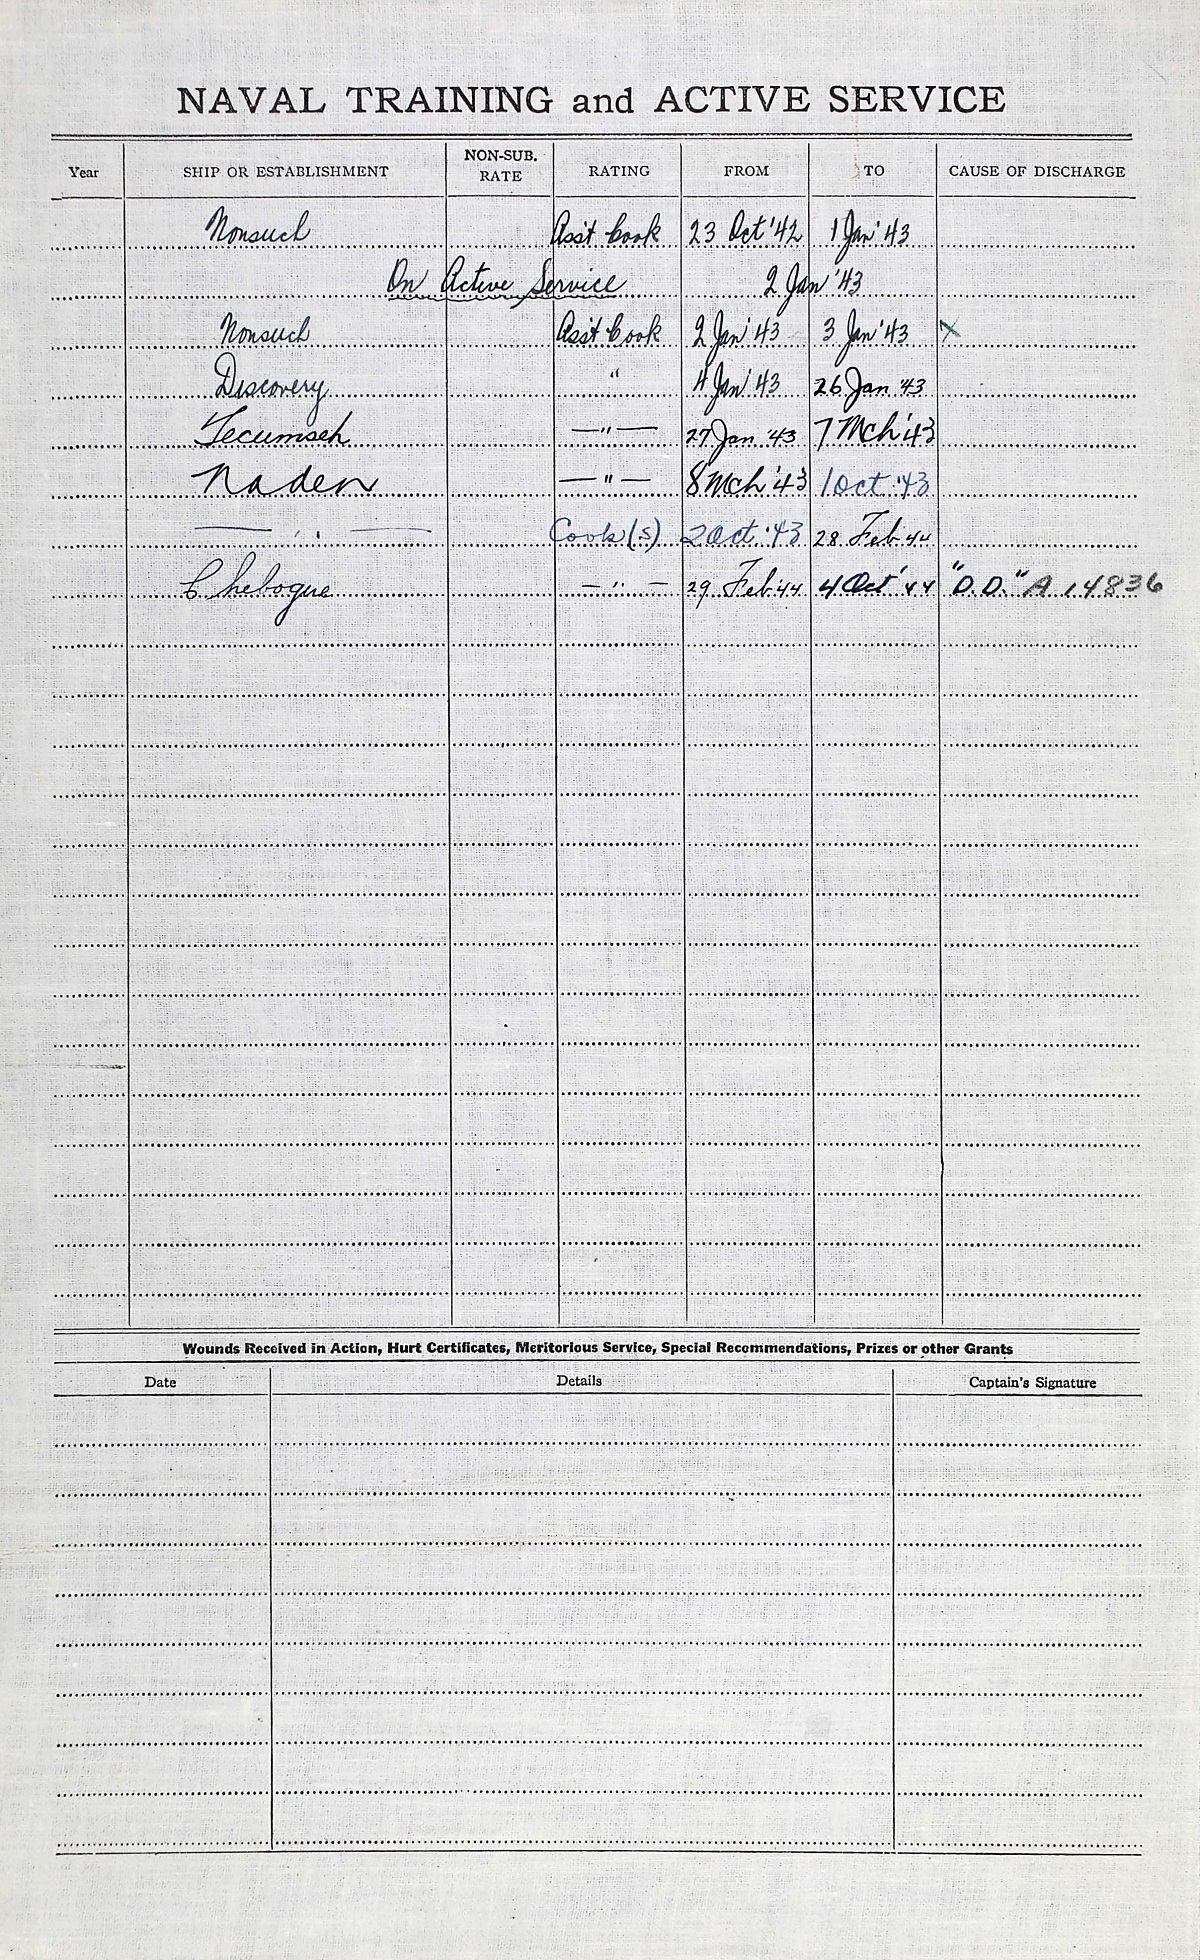 NAVAL TRAINING and ACTIVE SERVICE
Year SHIP OR ESTABLISHMENT NON-SUB. RATE RATING FROM TO CAUSE OF DISCHARGE
Nonsuch Ass't Cook 23 Oct '42 1 Jan '43
On Active Service 2 Jan '43
Nonsuch Ass't Cook 2 Jan '43 3 Jan '43 X
Discovery " 4 Jan '43 26 Jan '43
Tecumseh —"— 27 Jan '43 7 Mch '43
Naden —"— 8 Mch '43 1 Oct '43
— " — Cook (S) 2 Oct '43 28 Feb 44
Chebogue —"— 29 Feb '44 4 Oct '44 "D.D." A 14836
Wounds Received in Action, Hurt Certificates, Meritorious Service, Special Recommendations, Prizes or other Grants
Date Details Captain's Signature